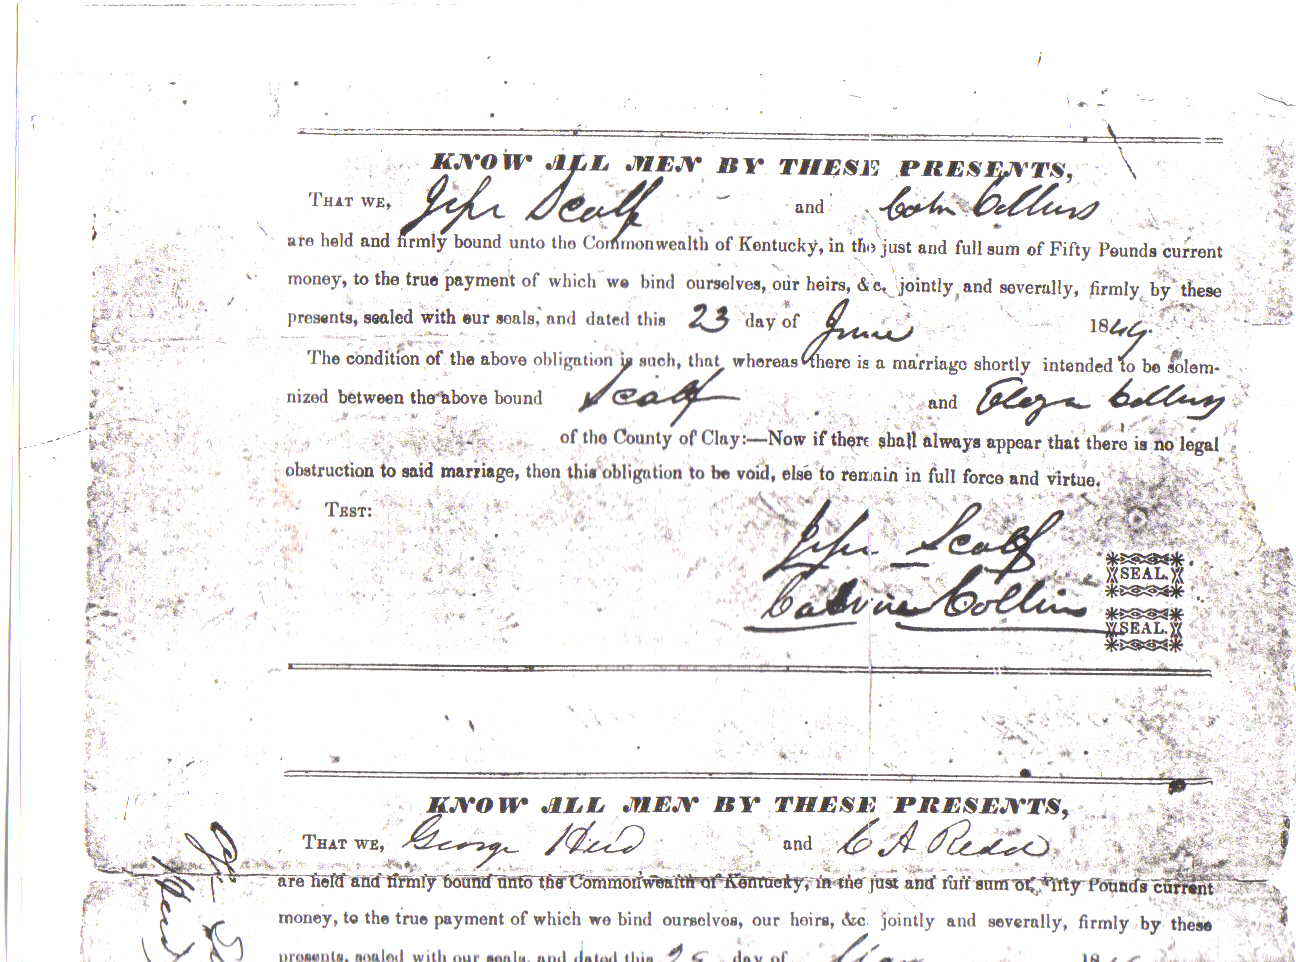 KNOW ALL MEN BY THESE PRESENTS,
THAT WE, Jefse Scalf and Calvin Collins
are held and firmly bound unto the Commonwealth of Kentucky, in the just and full sum of Fifty Pounds current
money, to the true payment of which we bind ourselves, our heirs, &c. jointly and severally, firmly by these
presents, sealed with our seals, and dated this 23 day of June 1849.
The condition of the above obligation is such, that whereas there is a marriage shortly intended to be solem-
nized between the above bound Scalf and Collins
of the County of Clay:—Now if there shall always appear that there is no legal
obstruction to said marriage, then this obligation to be void, else to remain in full force and virtue.
TEST:
Scalf
SEAL.
Calvin Collins
SEAL.
KNOW ALL MEN BY THESE PRESENTS,
THAT WE, George and C A Redd
are held and firmly bound unto the Commonwealth of Kentucky, in the just and full sum of Fifty Pounds current
money, to the true payment of which we bind ourselves, our heirs, &c. jointly and severally, firmly by these
presents, sealed with our seals, and dated this day of 18